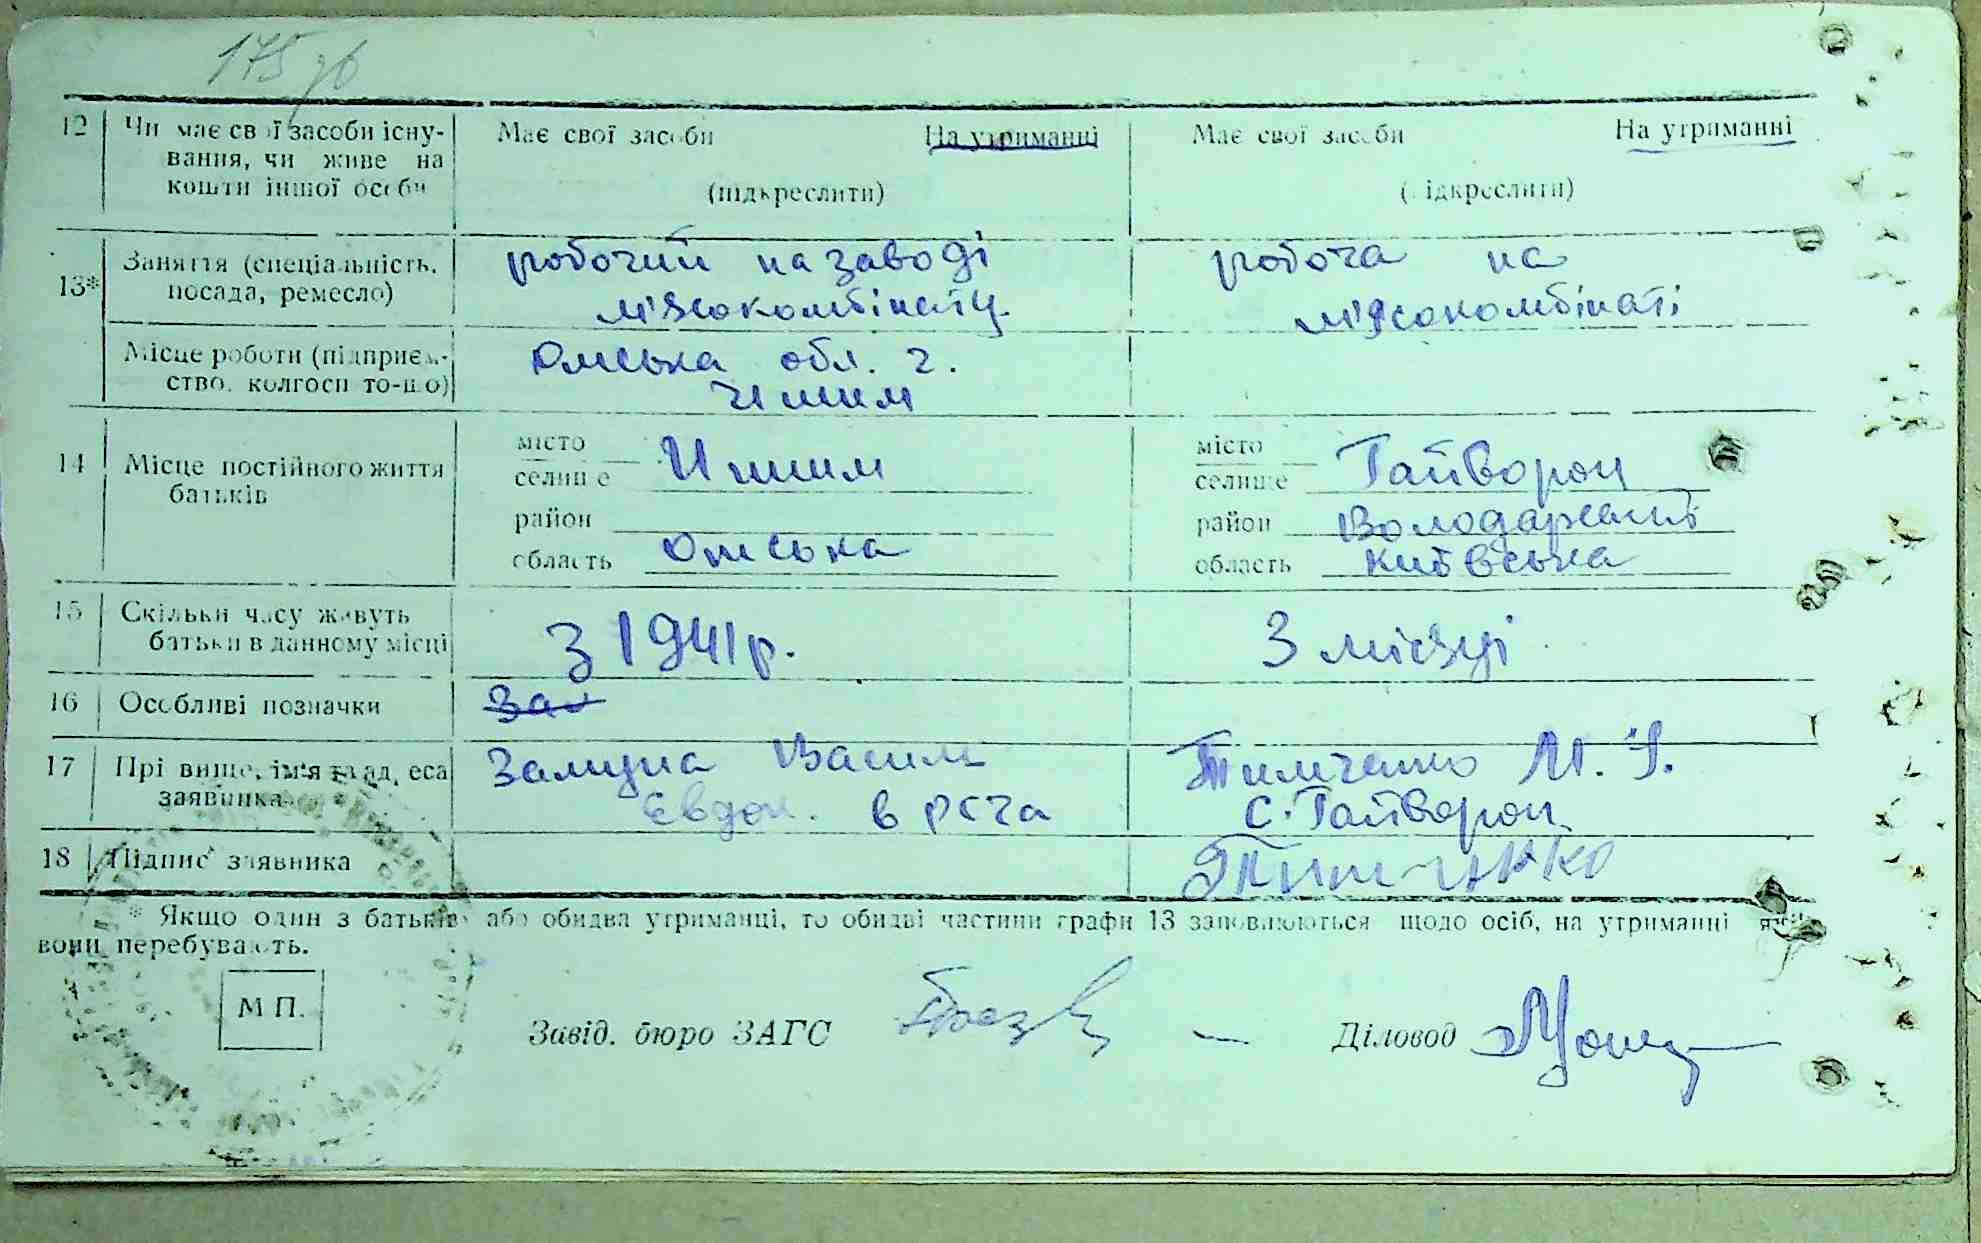 175
12 Чи має свої засоби існу- Має свої засоби На утриманні Має свої засоби На утриманні
вання, чи живе на
кошти іншої особи (підкреслити) (підкреслити)
13* Заняття (спеціальність, робочий на заводі робоча на
посада, ремесло) м'ясокомбінату. м'ясокомбінаті
Місце роботи (підприєм- Омська обл. г.
ство, колгосп то-що) Ишим
14 Місце постійного життя місто Ишим місто Гайворон
батьків селище селище
район район Володарський
область Омська область Київська
15 Скільки часу живуть З 1941р. 3 місяці
батьки в данному місці
16 Особливі позначки За
17 Прізвище, ім'я та адреса Василь Тимченко М. І.
заявника Євдок. с. Гайворон
18 Підпис заявника Тимченко
* Якщо один з батьків або обидва утриманці, то обидві частини графи 13 заповнюються щодо осіб, на утриманні яких
вони перебувають.
М П.
Завід. бюро ЗАГС Діловод